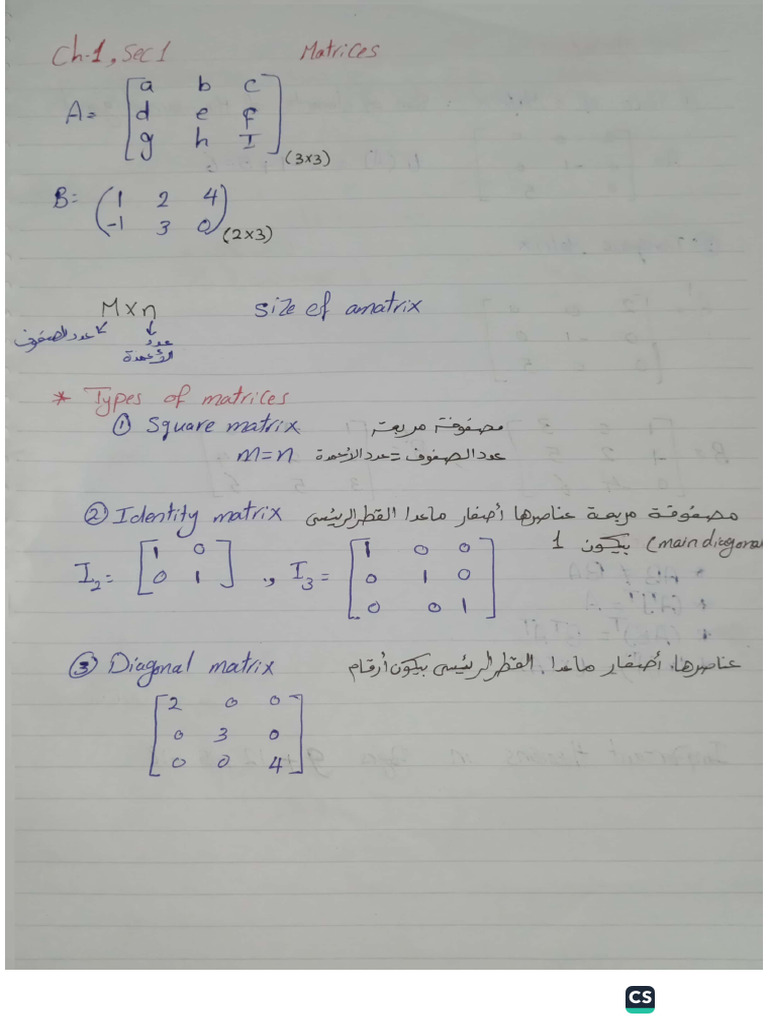 Ch.1, Sec 1 Matrices
A= [a b c
d e f
g h I] (3x3)
B= (1 2 4
-1 3 0) (2x3)
M x n size of amatrix
عدد الصفوف
عدد
الأعمدة
* Types of matrices
① Square matrix مصفوفة مربعة
m=n عدد الصفوف = عدد الأعمدة
② Identity matrix مصفوفة مربعة عناصرها أصفار ماعدا القطر الرئيسى
(main diagonal بيكون 1
I₂= [1 0
0 1] ,, I₃= [1 0 0
0 1 0
0 0 1]
③ Diagonal matrix عناصرها أصفار ماعدا القطر الرئيسى بيكون أرقام
[2 0 0
0 3 0
0 0 4]
CS